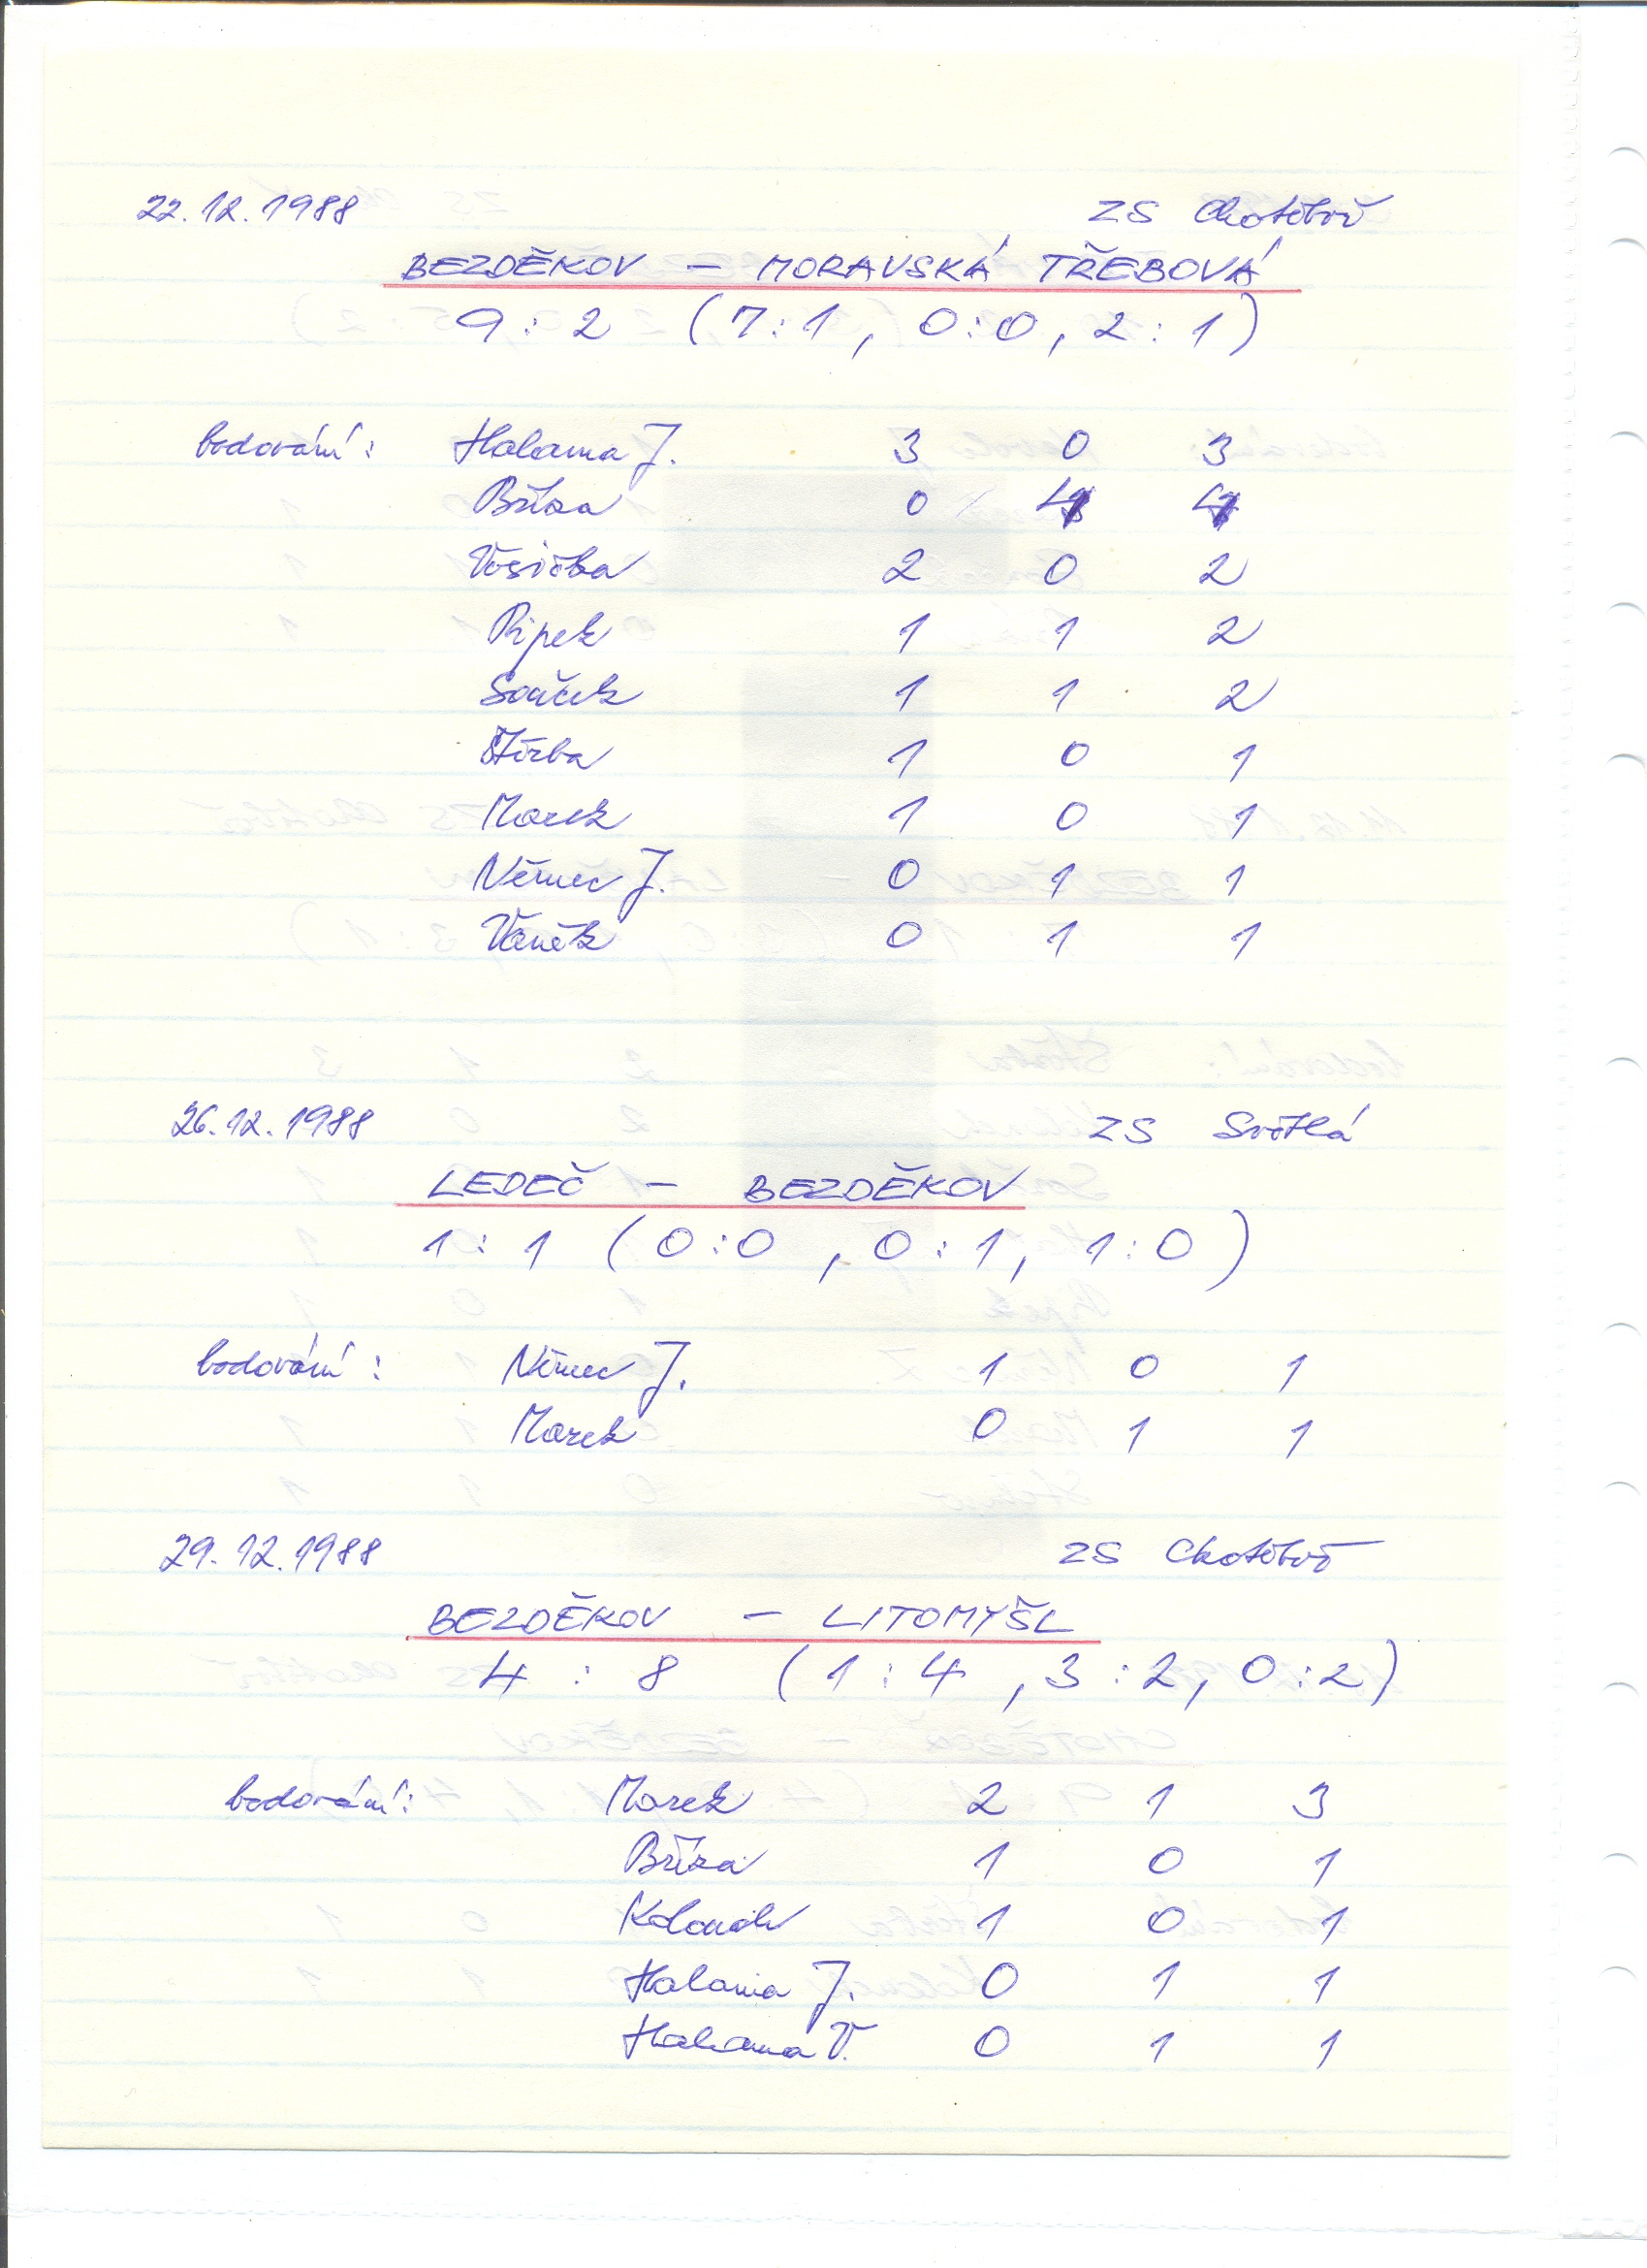 22.12.1988 ZS Chotěboř
BEZDĚKOV – MORAVSKÁ TŘEBOVÁ
9:2 (7:1, 0:0, 2:1)
bodování: Halama J. 3 0 3
Bříza 0 4 4
Vosička 2 0 2
Pipek 1 1 2
Souček 1 1 2
Štěrba 1 0 1
Marek 1 0 1
Němec J. 0 1 1
Vaněk 0 1 1
26.12.1988 ZS Světlá
LEDEČ – BEZDĚKOV
1:1 (0:0, 0:1, 1:0)
bodování: Němec J. 1 0 1
Marek 0 1 1
29.12.1988 ZS Chotěboř
BEZDĚKOV – LITOMYŠL
4:8 (1:4, 3:2, 0:2)
bodování: Marek 2 1 3
Bříza 1 0 1
1 0 1
Halama J. 0 1 1
Halama V. 0 1 1